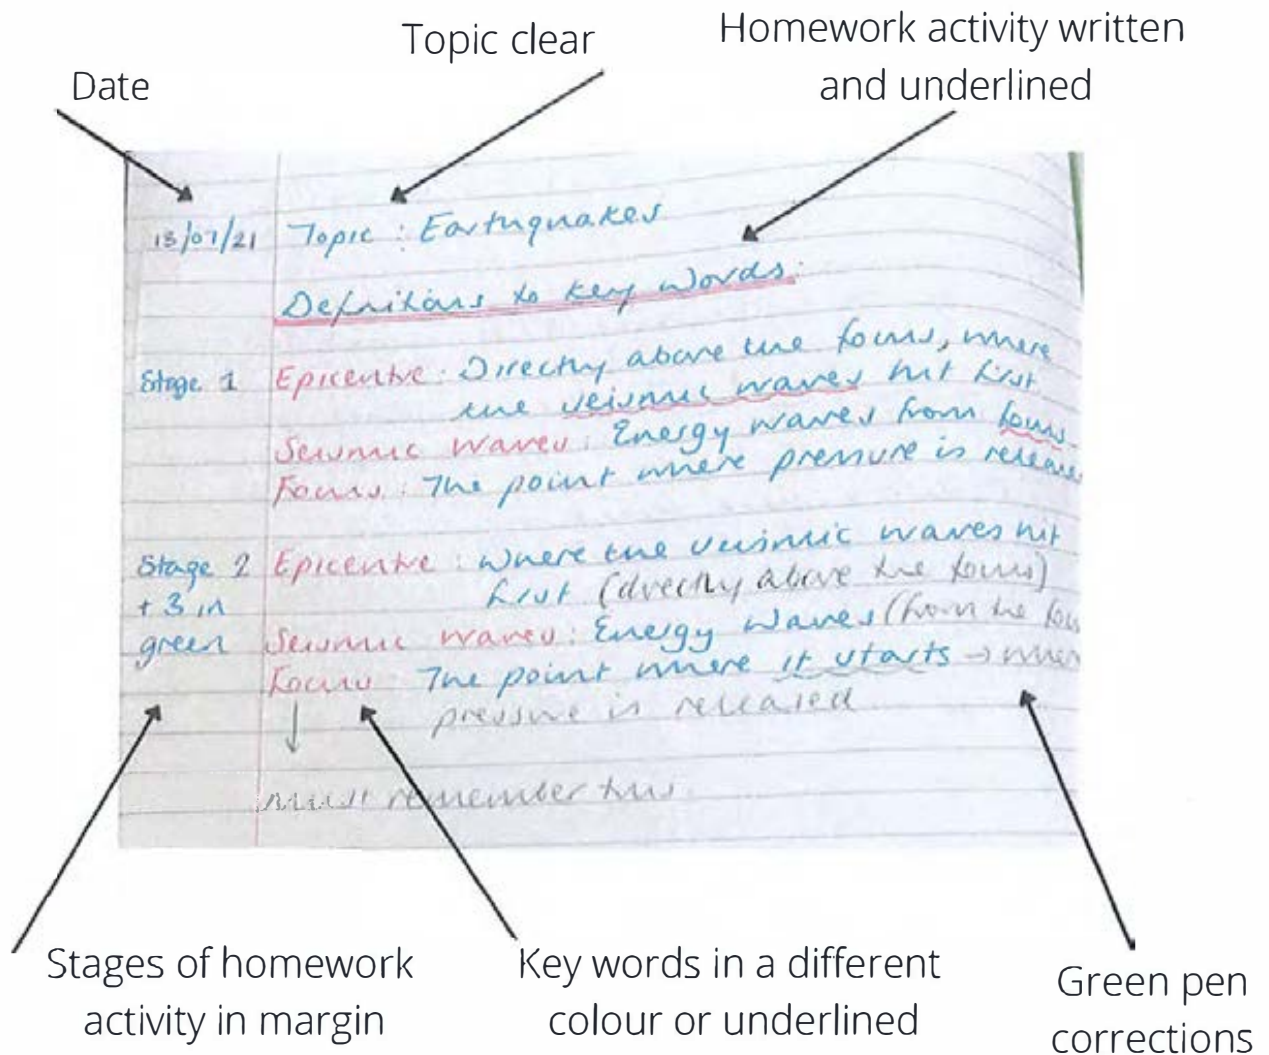 Topic clear
Homework activity written
and underlined
Date
13/07/21 Topic : Earthquakes
Definitions to key words:
Stage 1 Epicentre : Directly above the focus, where
the seismic waves hit first
Seismic waves : Energy waves from focus.
Focus : The point where pressure is release
Stage 2 Epicentre : where the seismic waves hit
+ 3 in first (directly above the focus)
green Seismic waves : Energy waves (from the foc
Focus : The point where it starts → wher
pressure is released
↓
must remember this
Stages of homework
activity in margin
Key words in a different
colour or underlined
Green pen
corrections